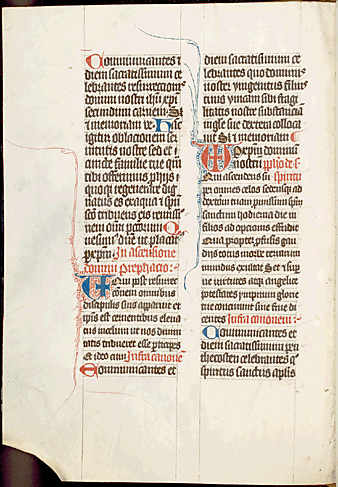 Communicantes et
diem sacratissimum ce
lebrantes resurrectionis
domini nostri ihu xpi
secundum carnem Sz
i memoriam ve Hāc
igitur oblacionem ser
uientis nostre sed et
cuncte familie tue quā
tibi offerimus pro hiis
quos regenerare dig
natus es ex aqua et spū
sctō tribuens eis remissi
nem oim peccatorum Q
dn̄e ut placat
In ascensione
domini Prephacio
Qui post resurre
cionem omnibus
discipulis suis apparuit et
ipsis est cernentibus eleua
tus in celum ut nos diuini
tatis tribueret esse participes
Et ideo cum Infra canone
Communicantes et
diem sacratissimum ce
lebrantes quo dominus
noster vnigenitus filius
tuus vnitam sibi fragi
litatis nostre substanciam
in glorie tue dextera collocauit
Sz et memoriam
Per xpm dominum
nostrum
Qui ascendens super
omnes celos sedensque ad
dexteram tuam promissum spm
sanctum hodierna die in
filios adopcionis effudit
Qua propter profusis gau
diis totus in orbe terrarum
mundus exultat Set et sup
ne virtutes atque angelice
potestates ympnum glorie
tue concinunt sine fine di
centes Infra canonem
Communicantes et
diem sacratissimum pen
thecosten celebrantes quo
spiritus sanctus aplis